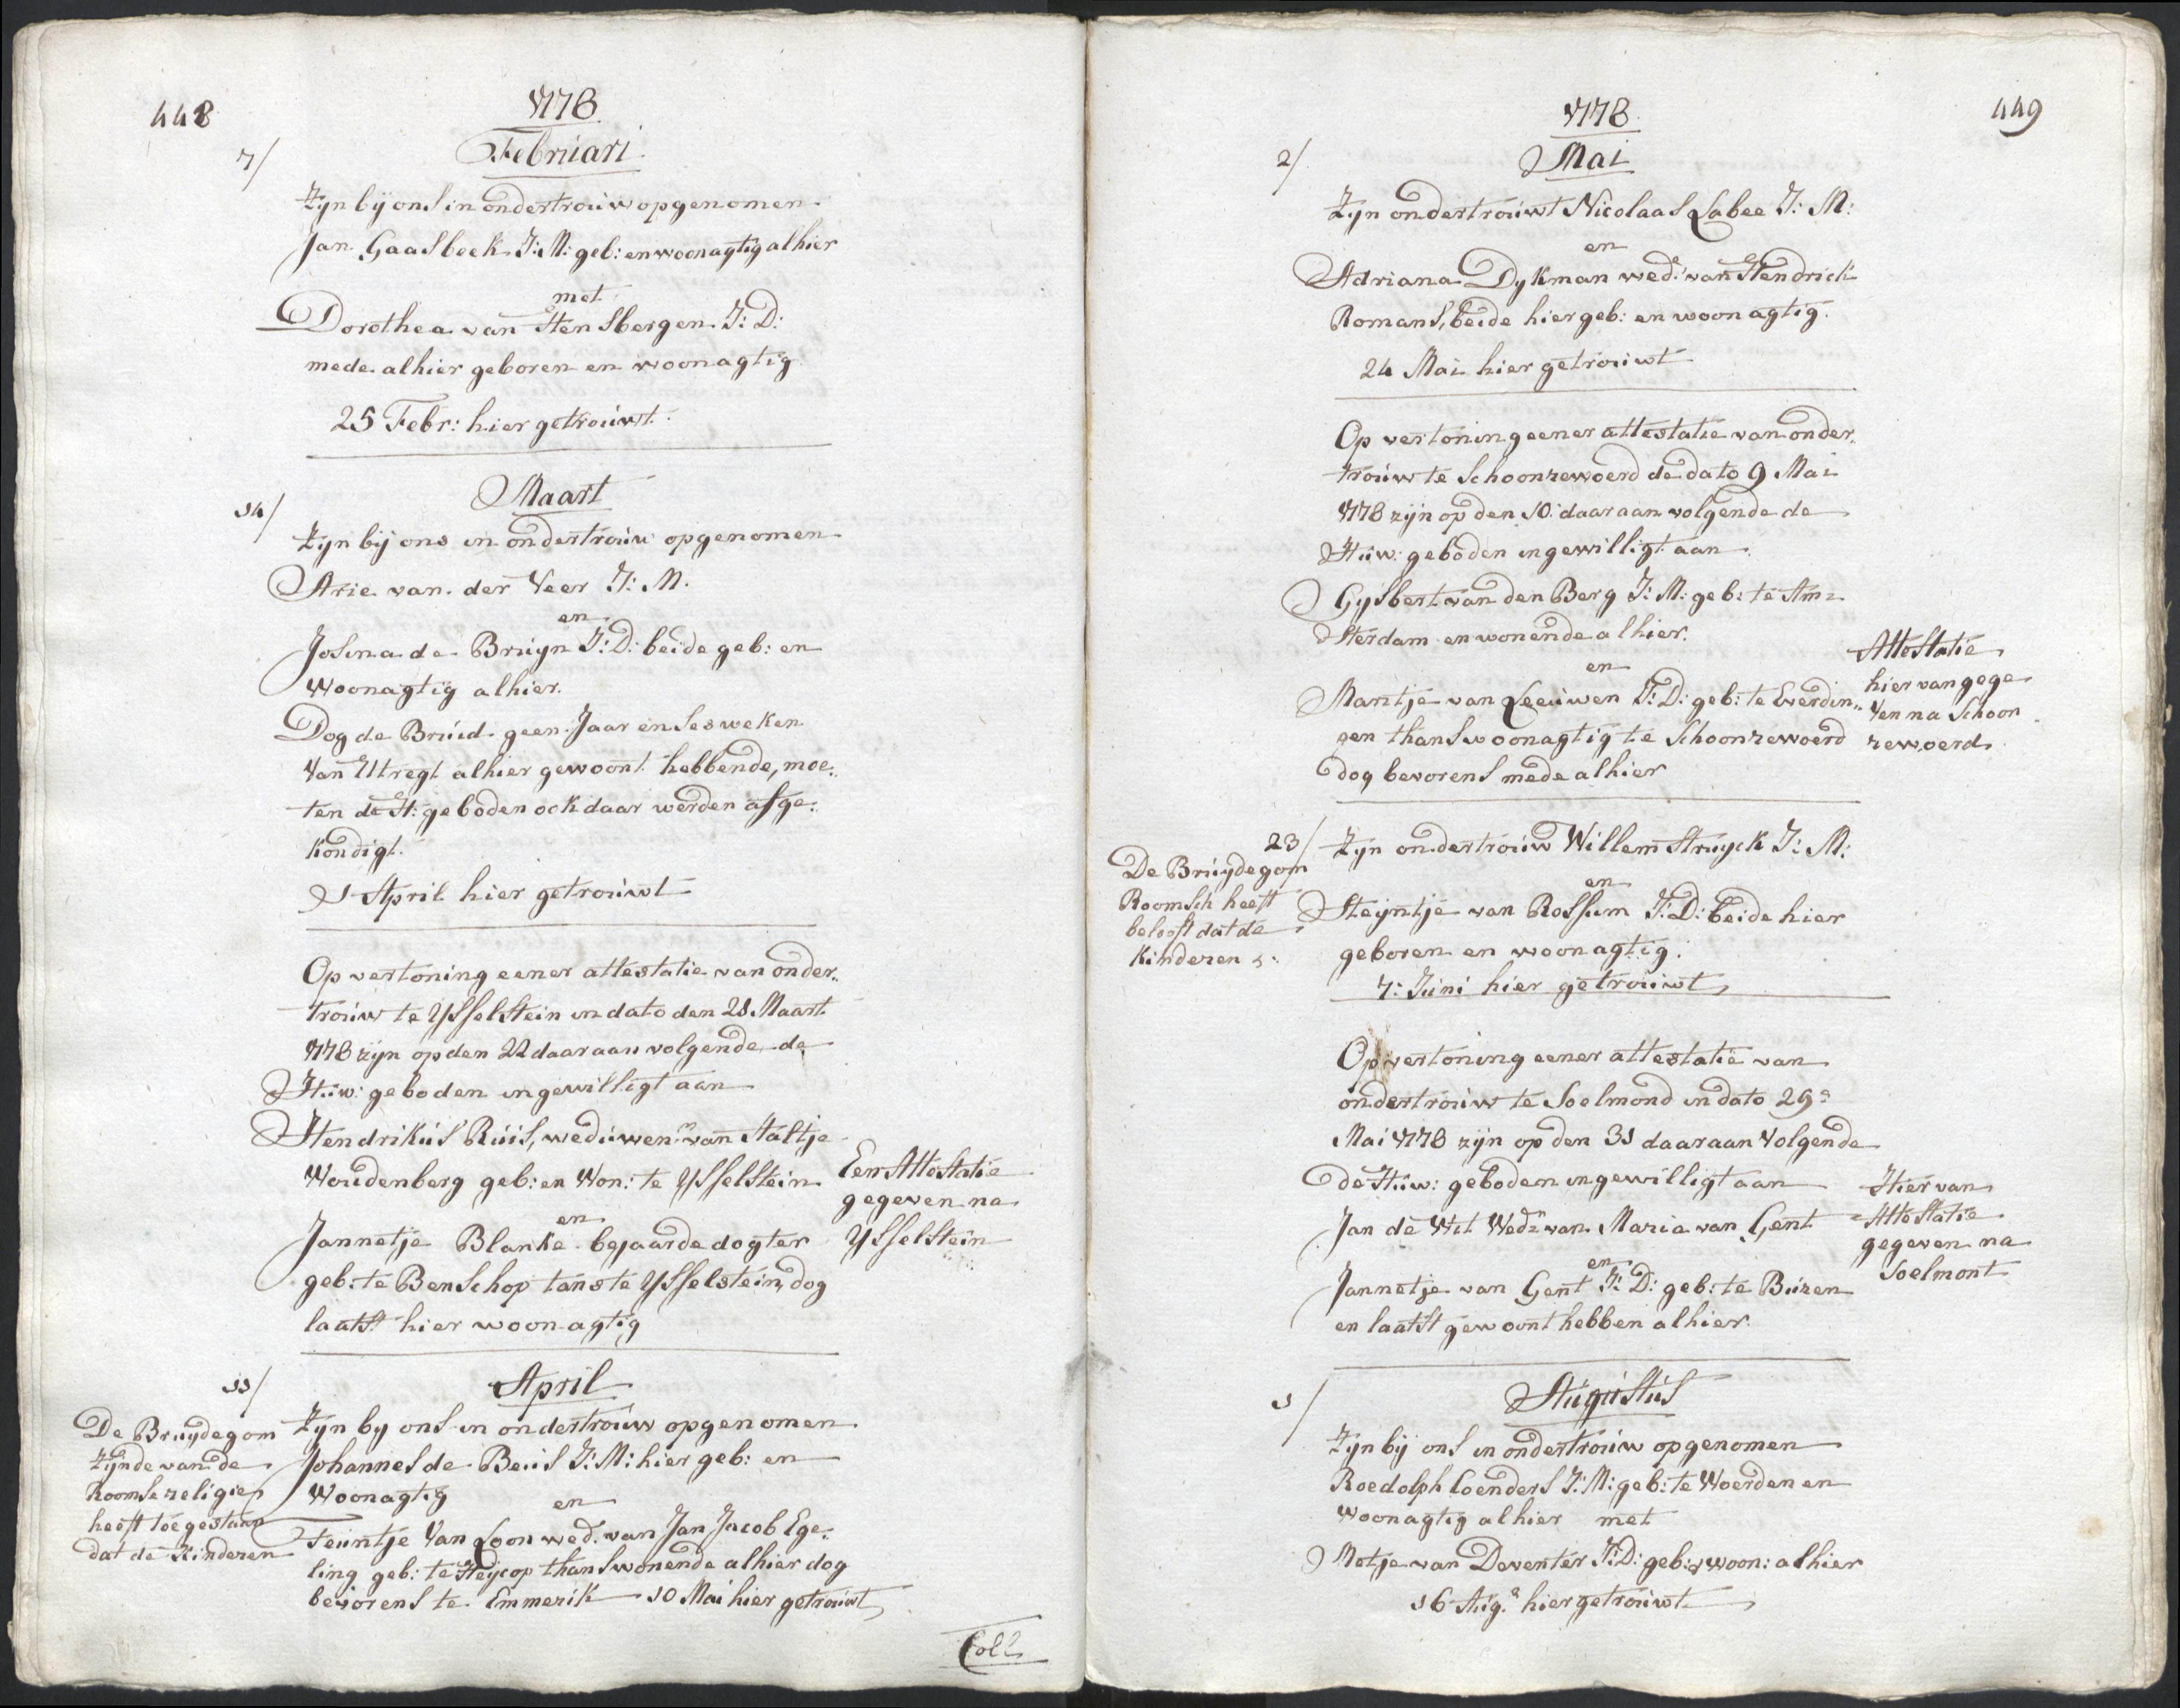 448
1778
Februari
7/
Zyn bij ons in ondertrouw opgenomen
Jan Gaasbeek J: M: geb: en woonagtig alhier
met
Dorothea van Hensbergen J: D:
mede alhier geboren en woonagtig
25 Febr: hier getrouwt.
Maart
14/
Zyn bij ons in ondertrouw opgenomen
Arie van der Veer J: M.
en
Josina de Bruyn J: D: beide geb: en
woonagtig alhier.
Dog de Bruid geen Jaar en ses weken
van Utregt alhier gewoont hebbende, moe„
ten de H: geboden ook daar werden afge„
kondigt.
1 April hier getrouwt
Op vertoning eener attestatie van onder„
trouw te Ysselstein in dato den 21 Maart
1778 zijn op den 22 daar aan volgende de
Huw: geboden ingewilligt aan
Hendrikus Ruis, weduwenr van Aaltje
Woudenberg geb: en Won: te Ysselstein
en
Jannetje Blanke bejaarde dogter
geb: te Benschop tans te Ysselstein, dog
laatst hier woonagtig
Een Attestatie
gegeven na
Ysselstein
April
11/
Zyn by ons in ondertrouw opgenomen
Johannes de Beus J: M: hier geb: en
Woonagtig
en
Teuntje Van Loon wed. van Jan Jacob Ege„
ling geb: te Heycop thans wonende alhier dog
bevorens te Emmerik 10 Mai hier getrouwt
De Bruydegom
zijnde van de
Roomse religie
heeft toegestaan
dat de Kinderen
449
1778
Mai
2/
Zyn ondertrouwt Nicolaas Labee J: M:
en
Adriana Dykman wed: van Hendrick
Romans, beide hier geb: en woonagtig.
24 Mai hier getrouwt
Op vertoning eener attestatie van onder„
trouw te Schoonrewoerd de dato 9 Mai
1778 zijn op den 10: daar aan volgende de
Huw: geboden ingewilligt aan
Gysbert van den Berg J: M: geb: te Am=
sterdam en wonende alhier.
en
Maritje van Leeuwen J: D: geb: te Everdin„
gen thans woonagtig te Schoonrewoerd
dog bevorens mede alhier
Attestatie
hier van gege
ven na Schoon
rewoerd
23/
Zyn ondertrouw Willem Struyck J: M:
en
Steyntje van Rossum J: D: beide hier
geboren en woonagtig.
7: Juni hier getrouwt
De Bruydegom
Roomsch heeft
belooft dat de
Kinderen
Op vertoning eener attestatie van
ondertrouw te Soelmond in dato 29:
Mai 1778 zijn op den 31 daar aan Volgende
de Huw: geboden ingewilligt aan
Jan de Wit Wedr van Maria van Gent
en
Jannetje van Gent J: D: geb: te Buren
en laatst gewoont hebben alhier.
Hier van
Attestatie
gegeven na
Soelmont
Augustus
1/
Zyn bij ons in ondertrouw opgenomen
Roedolph Coenders J: M: geb: te Woerden en
woonagtig alhier met
Metje van Deventer J: D: geb: & woon: alhier
16 Aug. hier getrouwt